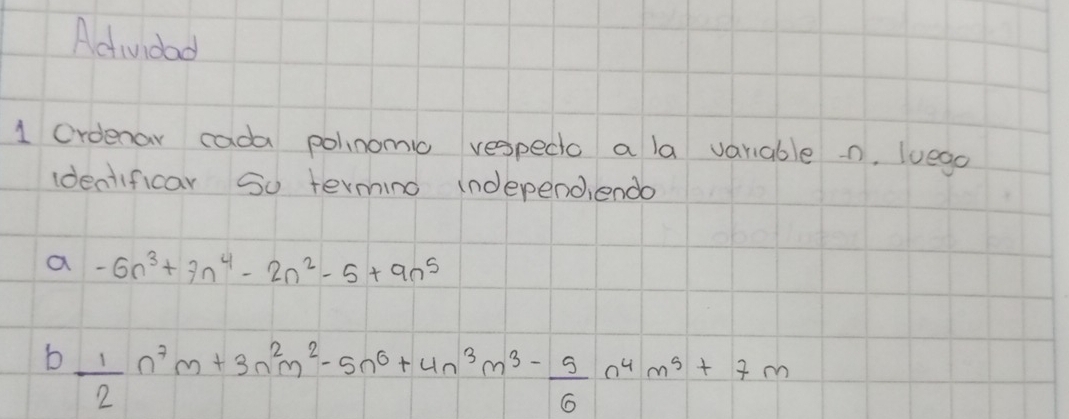 Actividad
1 Ordenar cada polinomio respecto a la variable n. luego
identificar su termino independiendo
a -6n³ + 7n⁴ - 2n² - 5 + 9n⁵
b 1/2 n⁷m + 3n²m² - 5n⁶ + 4n³m³ - 5/6 n⁴m⁵ + 7m